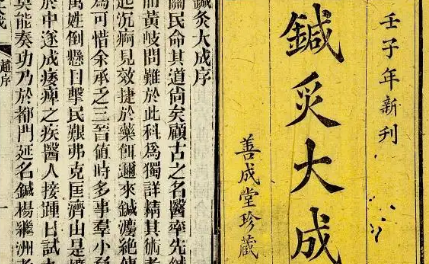 壬子年新刊
鍼灸大成
善成堂珍藏
鍼灸大成序
關民命其道尚矣顧古之名醫率先鍼
而黃岐問難於此科爲獨詳精其術者
起沉痾見效捷於藥餌邇來鍼灋絕傳
爲可惜余承乏三晉值時多事羣小
萬姓倒懸目擊民艱弗克匡濟由是
於中遂成痿痺之疾醫人接踵日試
莫能奏功乃於都門延名鍼楊繼洲者
趙序